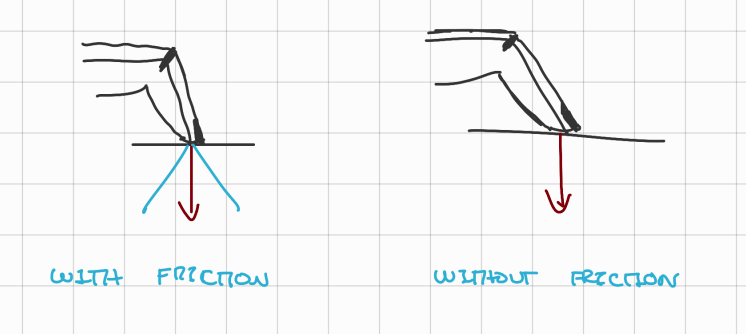 WITH FRICTION
WITHOUT FRICTION